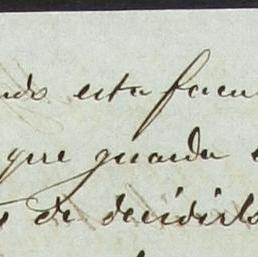 esta facu
que guarda
de decidirlo